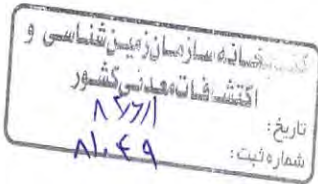 کتابخانه سازمان زمین‌شناسی و
اکتشافات معدنی کشور
تاریخ:
شماره ثبت: ۸۱۰۴۹